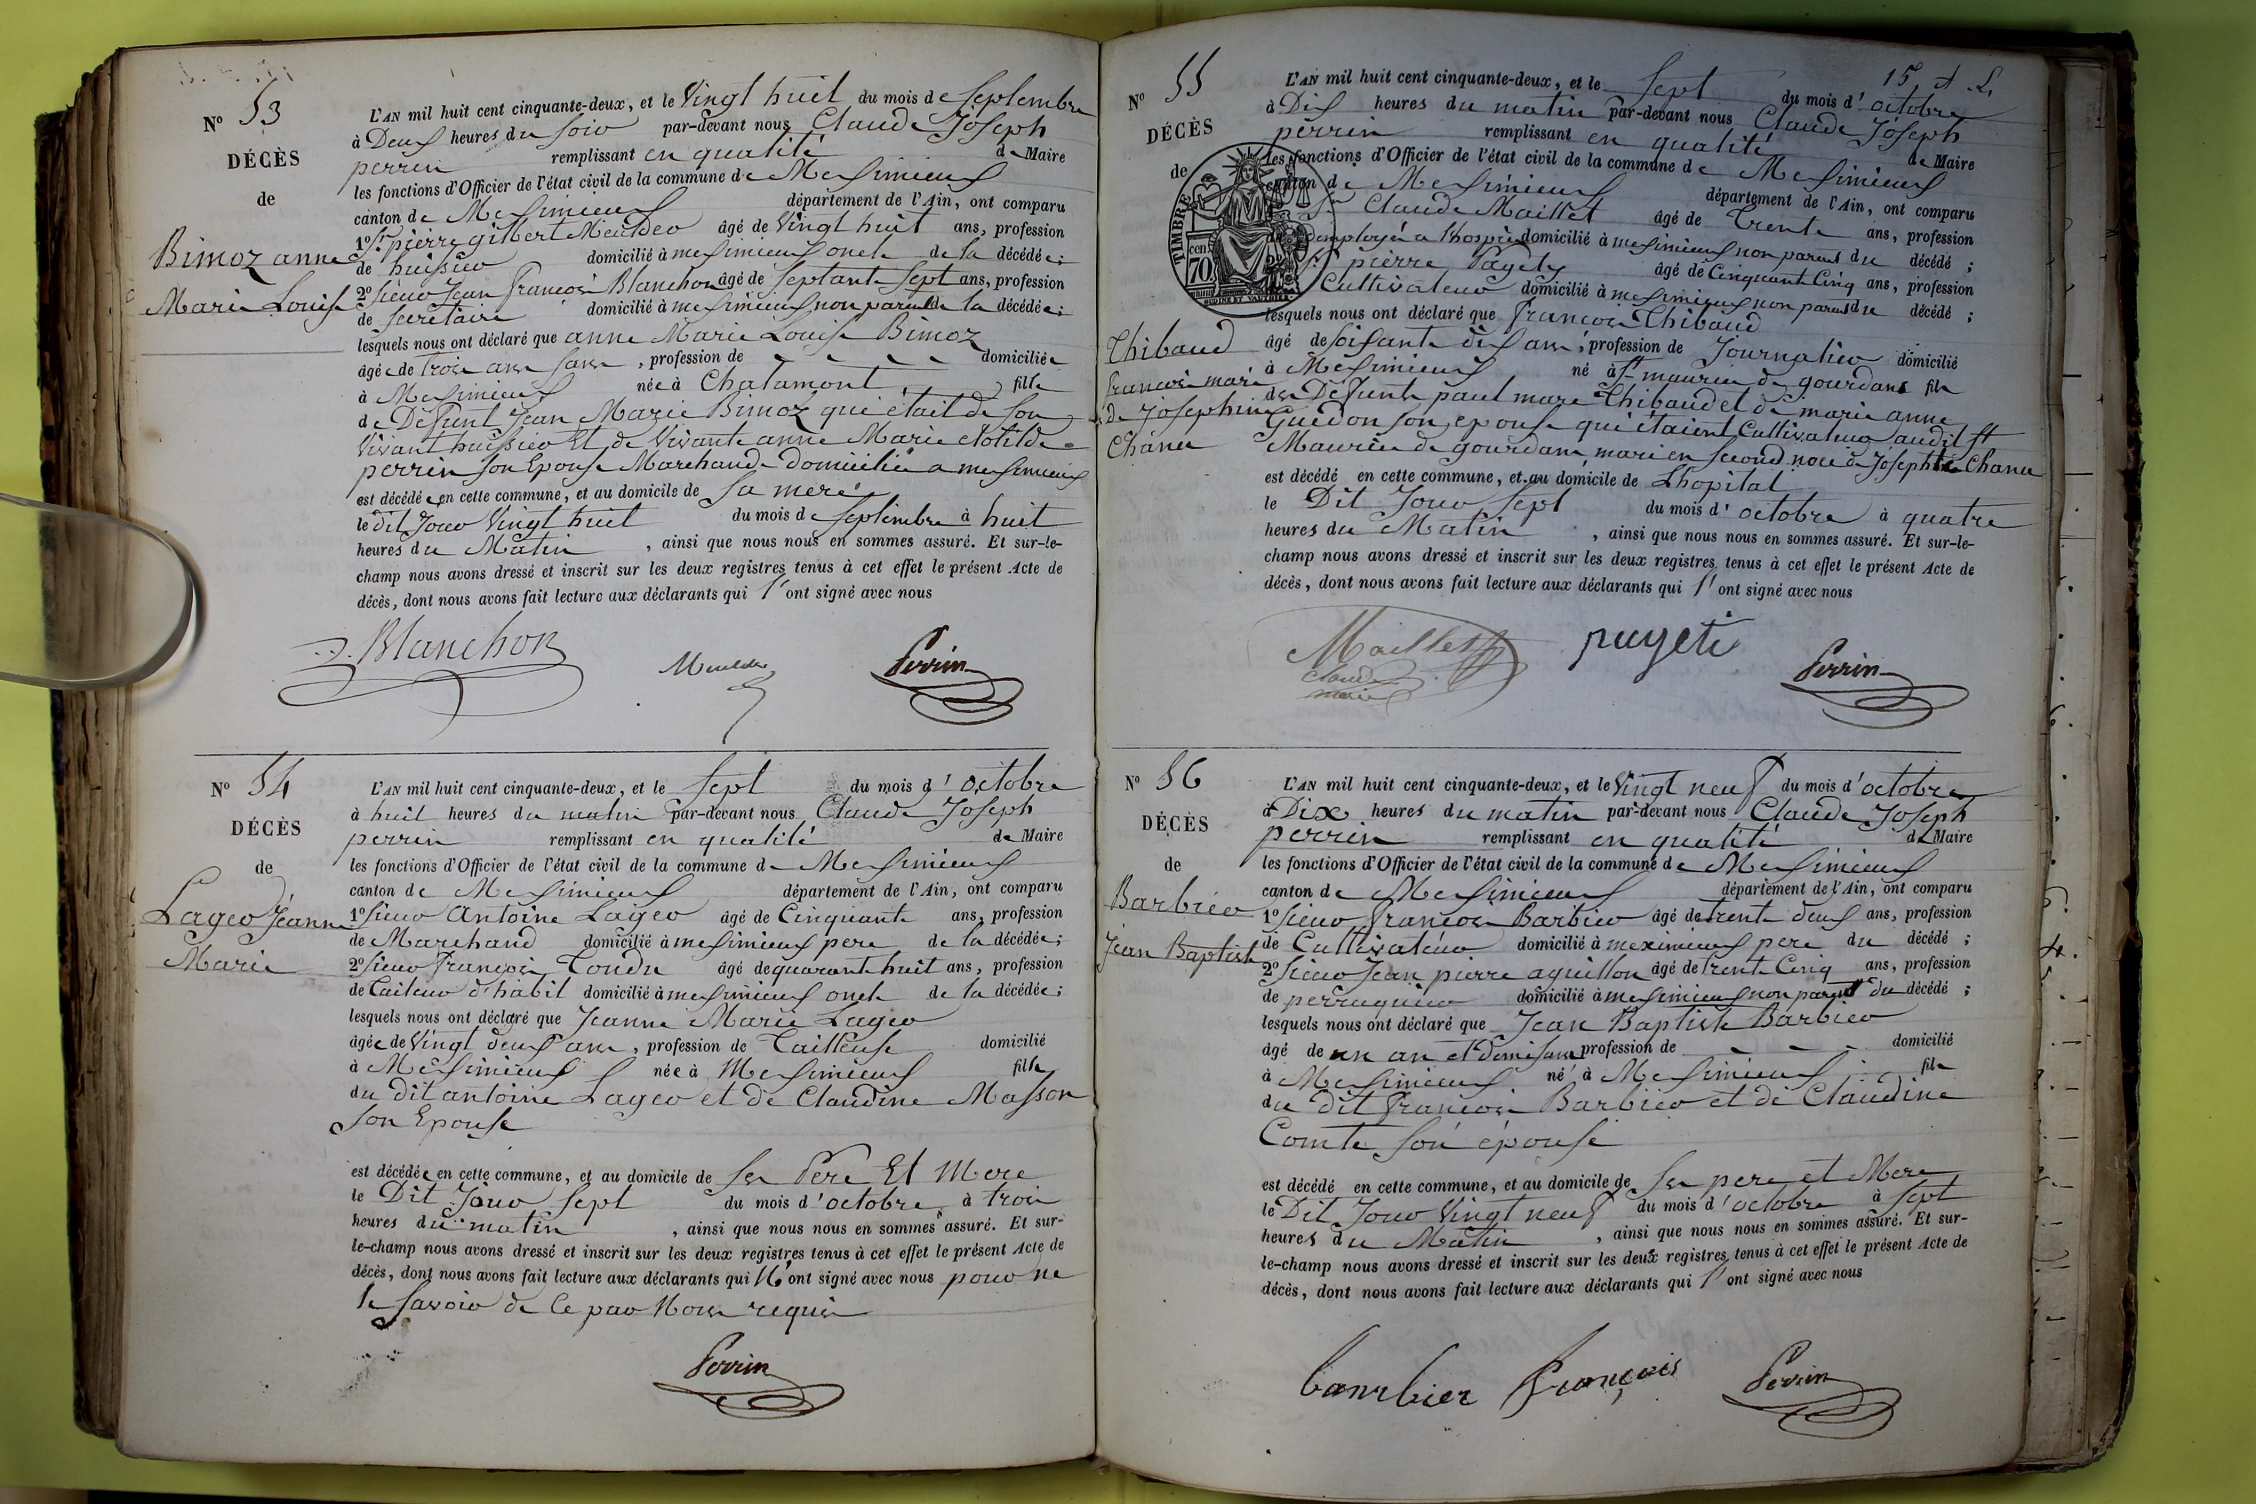 N° 53
DÉCÈS
de
Bimoz anne
Marie Louise
L'AN mil huit cent cinquante-deux, et le Vingt huit du mois de Septembre
à Deux heures du Soir par-devant nous Claude Joseph
perrin remplissant en qualité de Maire
les fonctions d'Officier de l'état civil de la commune de Meximieux
canton de Meximieux département de l'Ain, ont comparu
1° Sr pierre gilbert Meulder âgé de Vingt huit ans, profession
de huissier domicilié à meximieux oncle de la décédée;
2° Sieur Jean François Blanchon âgé de Septante Sept ans, profession
de Secretaire domicilié à meximieux non parent de la décédée;
lesquels nous ont déclaré que anne Marie Louise Bimoz
âgée de trois ans Sans, profession de domiciliée
à Meximieux née à Chalamont, fille
de Defunt Jean Marie Bimoz qui était de Son
Vivant huissier Et de Vivante anne Marie Clotilde
perrin Son Epouse Marchande domiciliée a meximieux
est décédée en cette commune, et au domicile de Sa mere
le dit Jour Vingt huit du mois de Septembre à huit
heures du Matin, ainsi que nous nous en sommes assuré. Et sur-le-
champ nous avons dressé et inscrit sur les deux registres tenus à cet effet le présent Acte de
décès, dont nous avons fait lecture aux déclarants qui l'ont signé avec nous
Blanchon Meulder Perrin
N° 54
DÉCÈS
de
Lager Jeanne
Marie
L'AN mil huit cent cinquante-deux, et le Sept du mois d'Octobre
à huit heures du matin par-devant nous Claude Joseph
perrin remplissant en qualité de Maire
les fonctions d'Officier de l'état civil de la commune de Meximieux
canton de Meximieux département de l'Ain, ont comparu
1° Sieur Antoine Lager âgé de Cinquante ans, profession
de Marchand domicilié à meximieux pere de la décédée;
2° Sieur François Tondu âgé de quarante huit ans, profession
de Tailleur d'habit domicilié à meximieux oncle de la décédée;
lesquels nous ont déclaré que Jeanne Marie Lager
âgée de Vingt deux ans, profession de Tailleuse domicilié
à Meximieux née à Meximieux fille
du dit antoine Lager et de Claudine Masson
Son Epouse
est décédée en cette commune, et au domicile de Ses Pere Et Mere
le Dit Jour Sept du mois d'octobre à trois
heures du matin, ainsi que nous nous en sommes assuré. Et sur-
le-champ nous avons dressé et inscrit sur les deux registres tenus à cet effet le présent Acte de
décès, dont nous avons fait lecture aux déclarants qui N'ont signé avec nous pour ne
le Savoir de Ce par Nous requis
Perrin
15 A. L.
N° 55
DÉCÈS
de
TIMBRE
70 cen
Thibaud
francois mari
de Josephine
Chanu
L'AN mil huit cent cinquante-deux, et le Sept du mois d'octobre
à Dix heures du matin par-devant nous Claude Joseph
perrin remplissant en qualité de Maire
les fonctions d'Officier de l'état civil de la commune de Meximieux
canton de Meximieux département de l'Ain, ont comparu
Sr Claude Maillet âgé de Trente ans, profession
employé a l'hospice domicilié à meximieux non parent du décédé;
Sr pierre Pagety âgé de Cinquante Cinq ans, profession
Cultivateur domicilié à meximieux non parent du décédé;
lesquels nous ont déclaré que François Thibaud
âgé de Soixante dix ans, profession de Journalier domicilié
à Meximieux né à St maurice de gourdans fils
des Defunts paul marc Thibaud et de marie anne
Guedon Son epouse qui étaient Cultivateurs audit St
Maurice de gourdans mari en Second noce de Josephte Chanu
est décédé en cette commune, et au domicile de Lhopital
le Dit Jour Sept du mois d'octobre à quatre
heures du Matin, ainsi que nous nous en sommes assuré. Et sur-le-
champ nous avons dressé et inscrit sur les deux registres tenus à cet effet le présent Acte de
décès, dont nous avons fait lecture aux déclarants qui l'ont signé avec nous
Maillet puyeti Perrin
Claude
marie
N° 56
DÉCÈS
de
Barbier
Jean Baptiste
L'AN mil huit cent cinquante-deux, et le Vingt neuf du mois d'octobre
à Dix heures du matin par-devant nous Claude Joseph
perrin remplissant en qualité de Maire
les fonctions d'Officier de l'état civil de la commune de Meximieux
canton de Meximieux département de l'Ain, ont comparu
1° Sieur françois Barbier âgé de trente deux ans, profession
de Cultivateur domicilié à meximieux pere du décédé;
2° Sieur Jean pierre aguillon âgé de trente Cinq ans, profession
de perruquier domicilié à meximieux non parent du décédé;
lesquels nous ont déclaré que Jean Baptiste Barbier
âgé de un an et Demi Sans profession de domicilié
à Meximieux né à Meximieux fils
du dit François Barbier et de Claudine
Comte Son épouse
est décédé en cette commune, et au domicile de Ses pere et Mere
le Dit Jour Vingt neuf du mois d'octobre à Sept
heures du Matin, ainsi que nous nous en sommes assuré. Et sur-
le-champ nous avons dressé et inscrit sur les deux registres tenus à cet effet le présent Acte de
décès, dont nous avons fait lecture aux déclarants qui l'ont signé avec nous
barbier françois Perrin